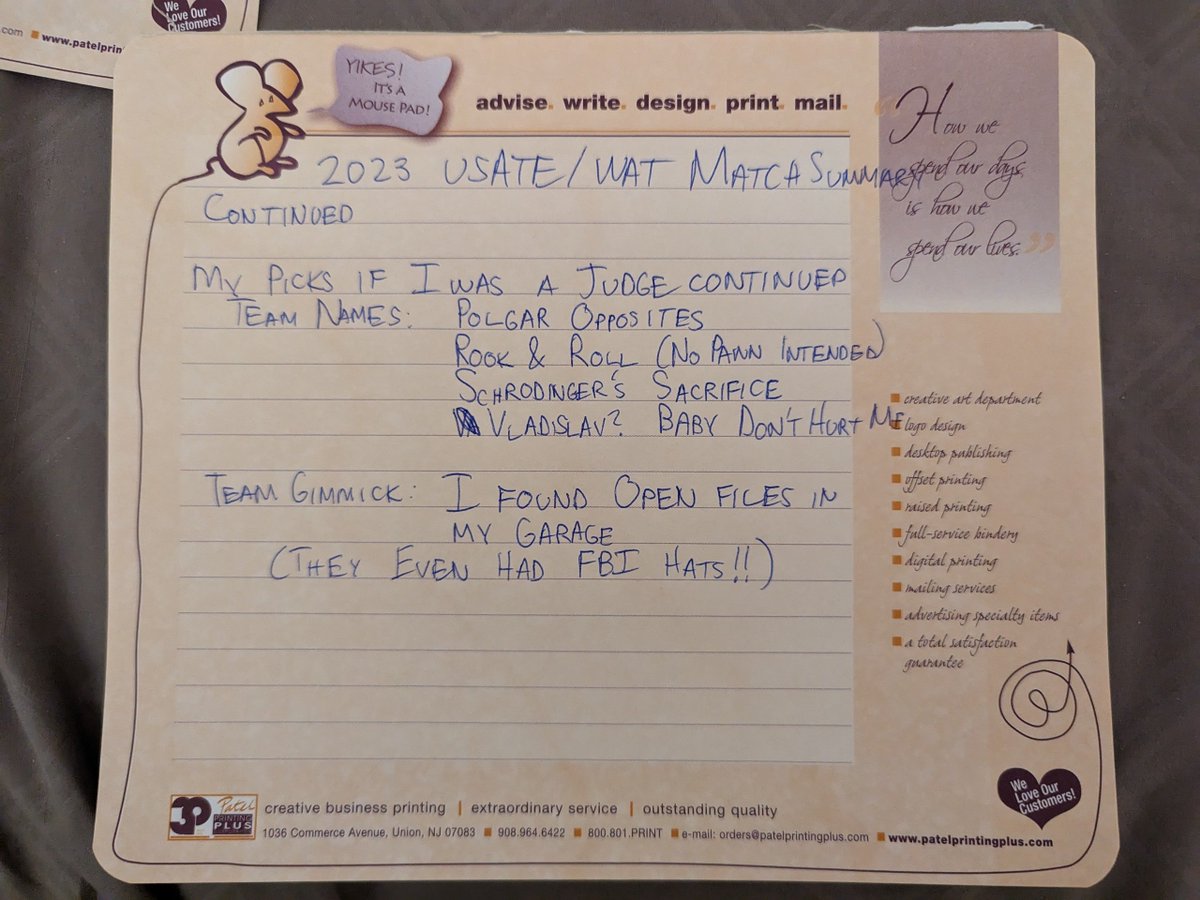 We
Love Our
Customers!
com ■ www.patelprin
YIKES!
IT'S A
MOUSE PAD!
advise. write. design. print. mail.
"How we
spend our days,
is how we
spend our lives."
2023 USATE/WAT MATCH SUMMARY
CONTINUED
MY PICKS IF I WAS A JUDGE CONTINUED
TEAM NAMES: POLGAR OPPOSITES
ROOK & ROLL (NO PAWN INTENDED)
SCHRODINGER'S SACRIFICE
VLADISLAV? BABY DON'T HURT ME
TEAM GIMMICK: I FOUND OPEN FILES IN
MY GARAGE
(THEY EVEN HAD FBI HATS!!)
■ creative art department
■ logo design
■ desktop publishing
■ offset printing
■ raised printing
■ full-service bindery
■ digital printing
■ mailing services
■ advertising specialty items
■ a total satisfaction
guarantee
We
Love Our
Customers!
3P Patel
PRINTING
PLUS
creative business printing | extraordinary service | outstanding quality
1036 Commerce Avenue, Union, NJ 07083 ■ 908.964.6422 ■ 800.801.PRINT ■ e-mail: orders@patelprintingplus.com ■ www.patelprintingplus.com